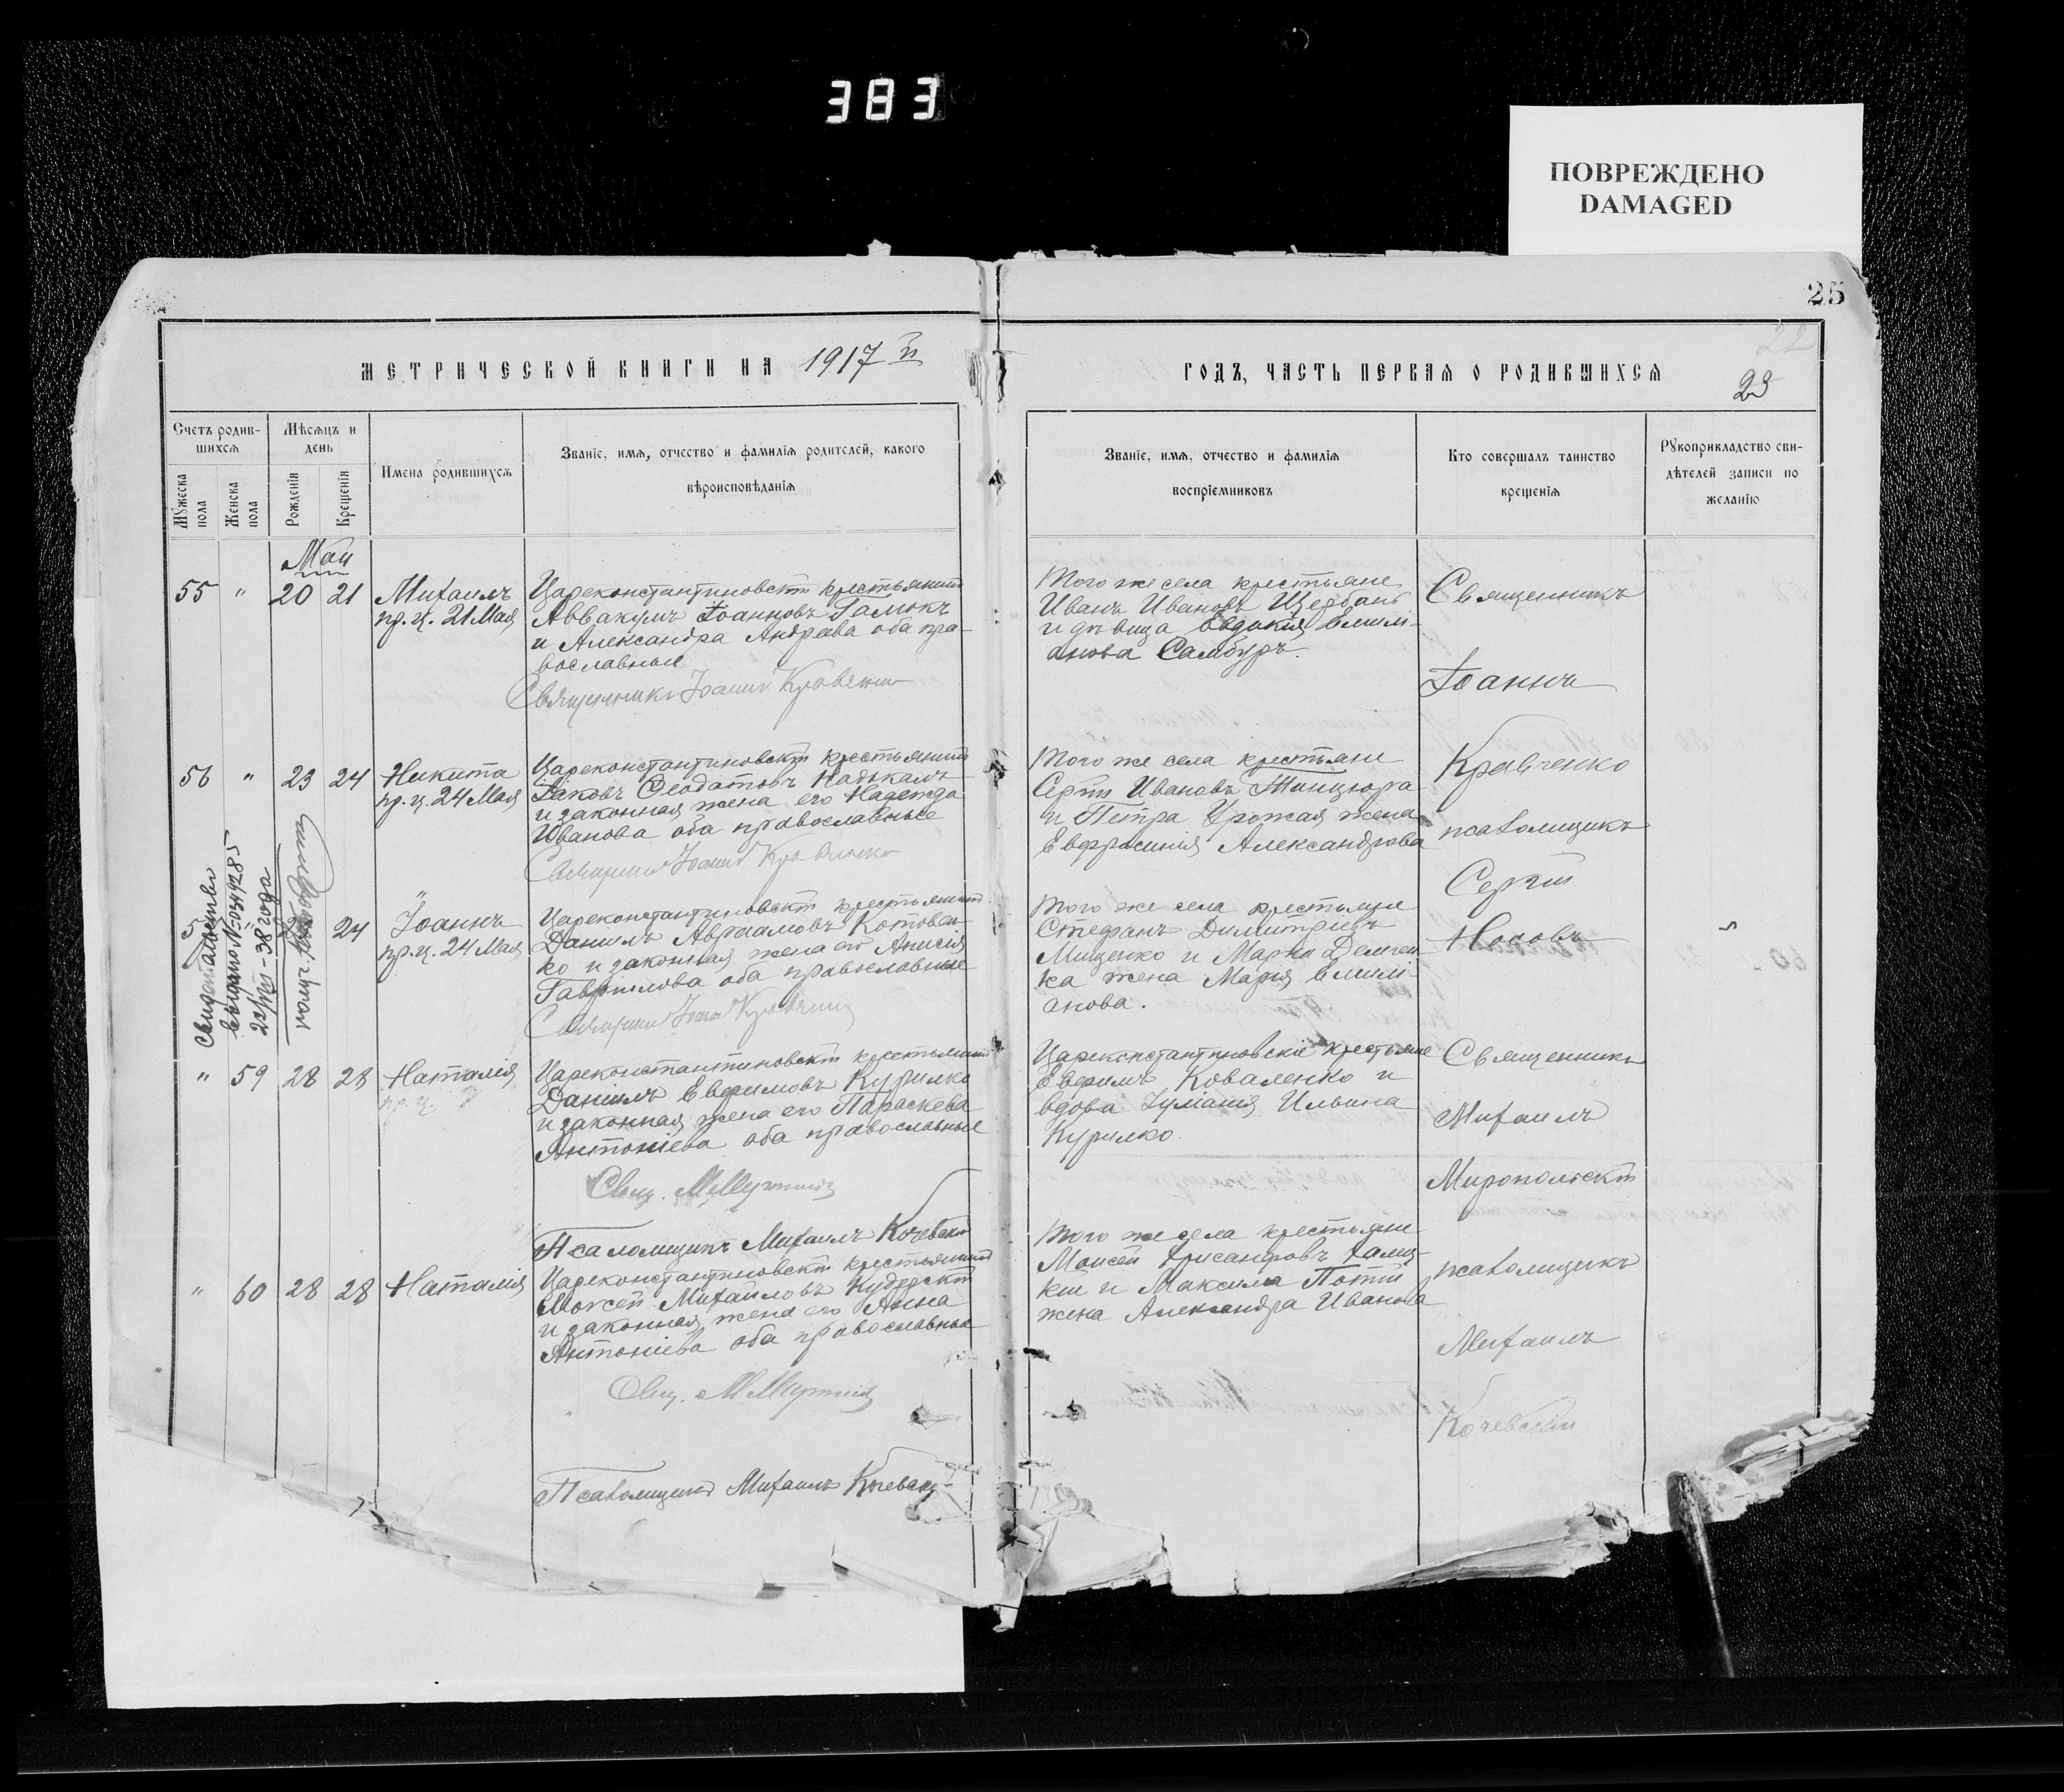 383
ПОВРЕЖДЕНО
DAMAGED
25
МЕТРИЧЕСКОЙ КНИГИ НА 1917 й
ГОДЪ, ЧАСТЬ ПЕРВАЯ О РОДИВШИХСЯ
23
Счетъ родив-
шихся
Мѣсяцъ и
день
Мужеска
пола
Женска
пола
Рожденія
Крещенія
Имена родившихся
Званіе, имя, отчество и фамилія родителей, какого
вѣроисповѣданія
Званіе, имя, отчество и фамилія
воспріемниковъ
Кто совершалъ таинство
крещенія
Рукоприкладство сви-
дѣтелей записи по
желанію
Май
55 " 20 21 Михаилъ
пр. ц. 21 Мая
Цареконстантиновскій крестьянинъ
Аввакумъ Іоанновъ Гамокъ
и Александра Андреева оба пра-
вославные
Священникъ Іоаннъ Кравченко
Того же села крестьяне
Иванъ Ивановъ Щербань
и дѣвица Евдокія Емилі-
анова Самбуръ.
Священникъ
Іоаннъ
Кравченко
псаломщикъ
Сергій
Носовъ
56 " 23 24 Никита
пр. ц. 24 Мая
Цареконстантиновскій крестьянинъ
Іаковъ Феодотовъ
и законная жена его Надежда
Иванова оба православные
Іоаннъ Кравченко
Того же села крестьяне
Сергій Ивановъ
и Петра жена
Евфросинія Александрова
Свидетельство
выдано № 034928
38 года
24 Іоаннъ
пр. ц. 24 Мая
Цареконстантиновскій крестьянинъ
Даніилъ Авраамовъ Котовен-
ко и законная жена его Анисія
Гавріилова оба православные
Того же села крестьяне
Стефанъ Димитріевъ
Мищенко и Марка Демчен-
ка жена Марія Емилі-
анова.
" 59 28 28 Наталія
пр. ц.
Цареконстантиновскій крестьянинъ
Даніилъ Евфимовъ Курилко
и законная жена его Параскева
Антоніева оба православные
Псаломщикъ Михаилъ Кочевскій
Цареконстантиновскіе крестьяне
Евфимъ Коваленко и
вдова Іуліанія Ильина
Курилко.
Священникъ
Михаилъ
Миропольскій
псаломщикъ
Михаилъ
Кочевскій
" 60 28 28 Наталія
Цареконстантиновскій крестьянинъ
Моисей Михаиловъ
и законная жена его Анна
Антоніева оба православные
Псаломщикъ Михаилъ Кочевскій
Того же села крестьяне
Моисей
кій и Максима
жена Александра Иванова